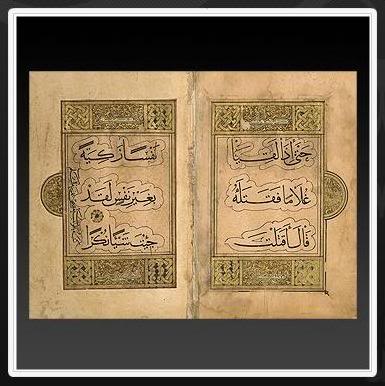 حتى اذا لقيا
غلاما فقتله
قال أقتلت
نفسا زكية
بغير نفس لقد
جئت شيئا نكرا